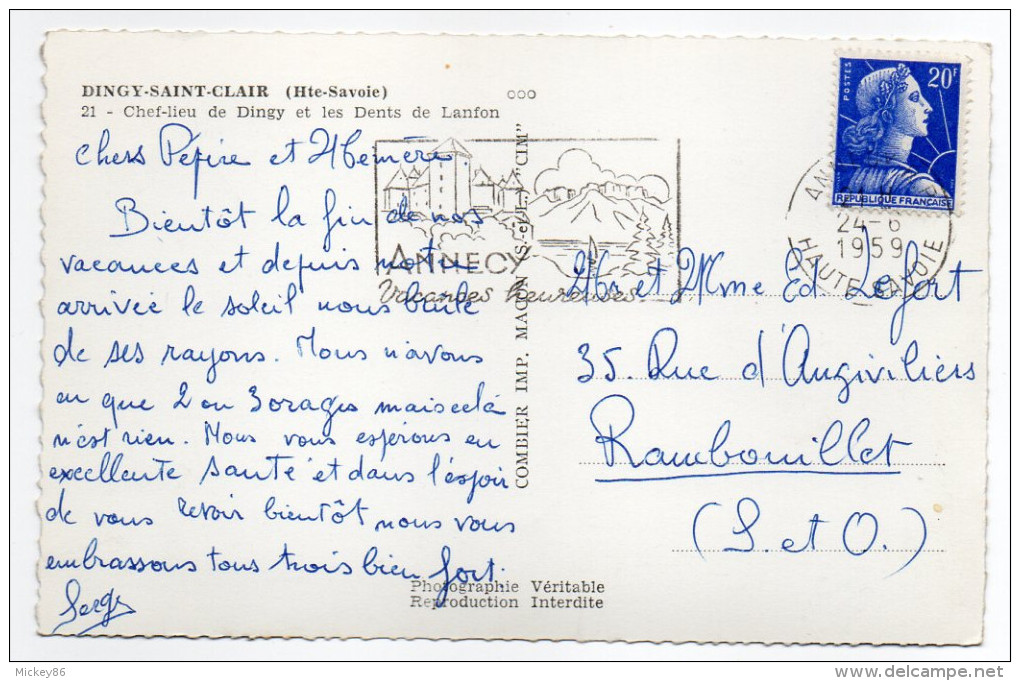 DINGY-SAINT-CLAIR (Hte-Savoie)
21 - Chef-lieu de Dingy et les Dents de Lanfon
Chers Pépire et Mémère.
Bientôt la fin de nos
vacances et depuis notre
arrivée le soleil nous brule
de ses rayons. Nous n'avons
eu que 2 ou 3 orages mais celà
n'est rien. Nous vous espérons en
excellente santé et dans l'espoir
de vous revoir bientôt nous vous
embrassons tous trois bien fort.
Serge
ANNECY
Vacances heureuses
COMBIER IMP. MACON (S.-et-L.) "CIM"
POSTES
20F
REPUBLIQUE FRANÇAISE
24-6
1959
HAUTE SAVOIE
Mr et Mme Ed. Lefort
35. Rue d'Angiviliers
Rambouillet
(S. et O.)
Photographie Véritable
Reproduction Interdite
Mickey86
www.delcampe.net